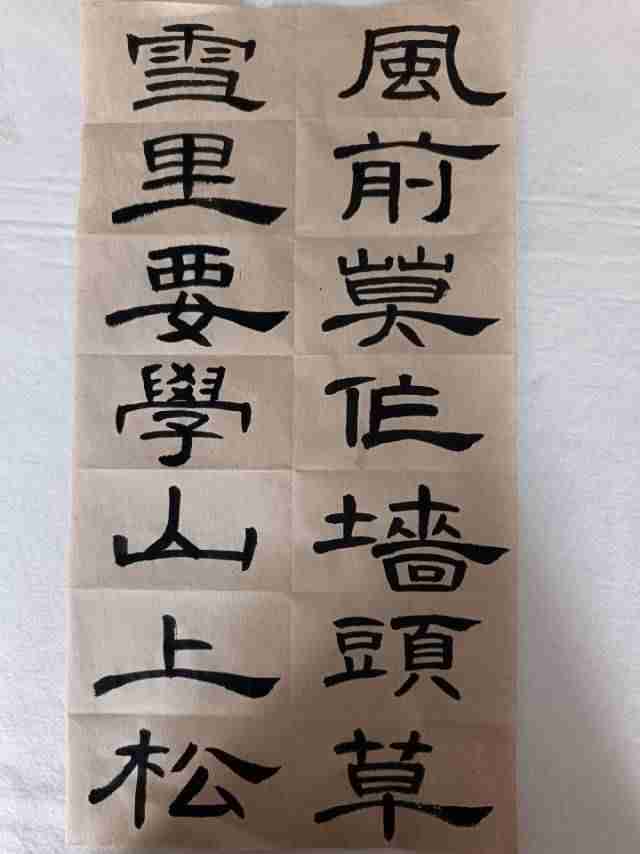 風前莫作墻頭草
雪里要學山上松